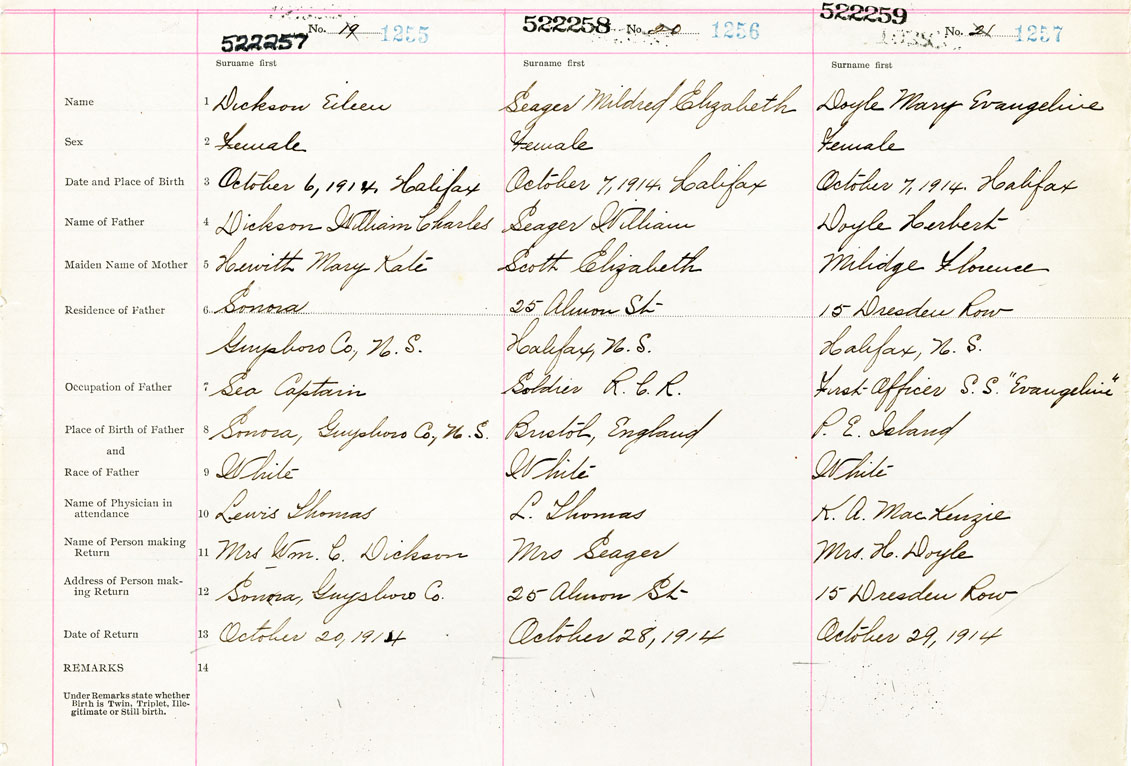 522257 No. 19 1255
522258 No. 20 1256
522259 No. 21 1257
Surname first Surname first Surname first
Name 1 Dickson Eileen Seager Mildred Elizabeth Doyle Mary Evangeline
Sex 2 Female Female Female
Date and Place of Birth 3 October 6, 1914, Halifax October 7, 1914. Halifax October 7, 1914. Halifax
Name of Father 4 Dickson William Charles Seager William Doyle Herbert
Maiden Name of Mother 5 Hewitt Mary Kate Scott Elizabeth Milidge Florence
Residence of Father 6 Sonora 25 Almon St 15 Dresden Row
Guysboro Co, N.S. Halifax, N.S. Halifax, N.S.
Occupation of Father 7 Sea Captain Soldier R.C.R. First Officer S.S. "Evangeline"
Place of Birth of Father 8 Sonora, Guysboro Co., N.S. Bristol, England P. E. Island
and
Race of Father 9 White White White
Name of Physician in
attendance 10 Lewis Thomas L. Thomas K. A. MacKenzie
Name of Person making
Return 11 Mrs Wm. C. Dickson Mrs Seager Mrs. H. Doyle
Address of Person mak-
ing Return 12 Sonora, Guysboro Co. 25 Almon St 15 Dresden Row
Date of Return 13 October 20, 1914 October 28, 1914 October 29, 1914
REMARKS 14
Under Remarks state whether
Birth is Twin, Triplet, Ille-
gitimate or Still birth.